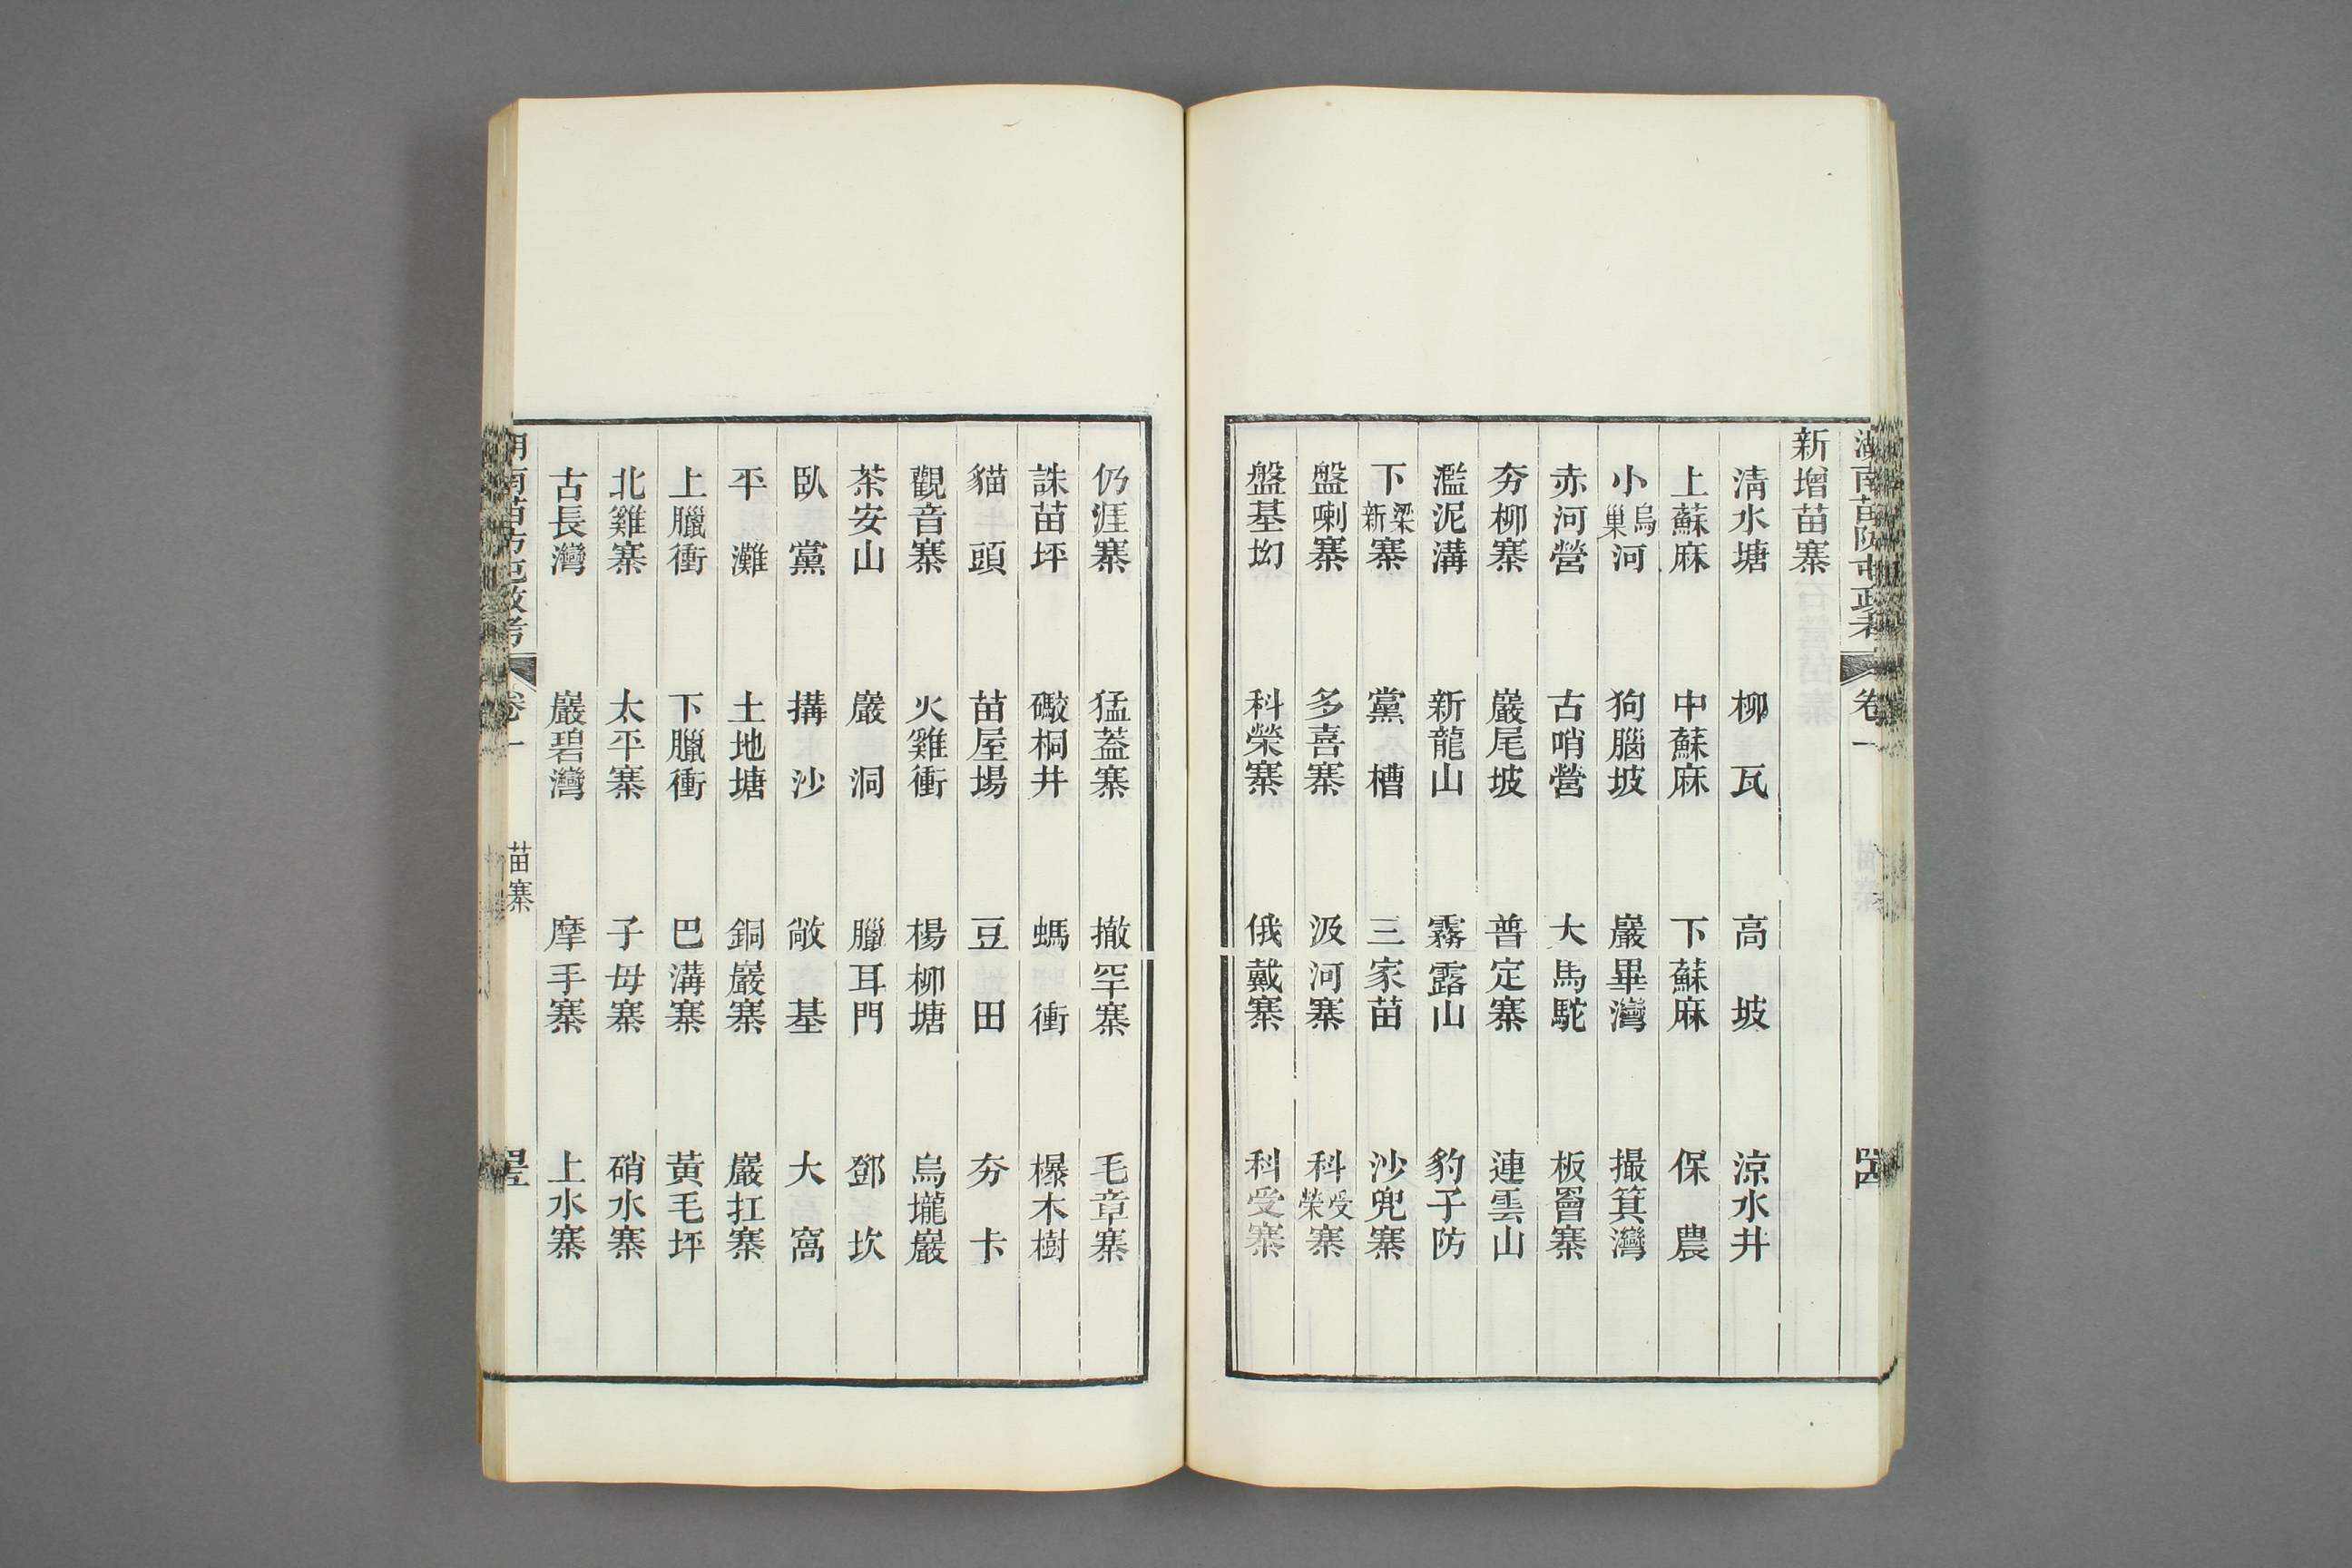 新增苗寨
清水塘 柳瓦 高坡 涼水井
上蘇麻 中蘇麻 下蘇麻 保農
小烏巢河 狗腦坡 巖畢灣 撮箕灣
赤河營 古哨營 大馬駝 板罾寨
夯柳寨 巖尾坡 普定寨 連雲山
濫泥溝 新龍山 霧露山 豹子防
下梁新寨 黨槽 三家苗 沙兜寨
盤喇寨 多喜寨 汲河寨 科受榮寨
盤基㘭 科榮寨 俄戴寨 科受寨
湖南苗防屯政考 卷一
仍涯寨 猛葢寨 撤罕寨 毛章寨
誅苗坪 礮桐井 螞衝 㯷木樹
貓頭 苗屋場 豆田 夯卡
觀音寨 火雞衝 楊柳塘 烏壠巖
茶安山 巖洞 臘耳門 鄧坎
臥黨 搆沙 敞基 大窩
平灘 土地塘 銅巖寨 巖扛寨
上臘衝 下臘衝 巴溝寨 黃毛坪
北雞寨 太平寨 子母寨 硝水寨
古長灣 巖碧灣 摩手寨 上水寨
湖南苗防屯政考 卷一 苗寨